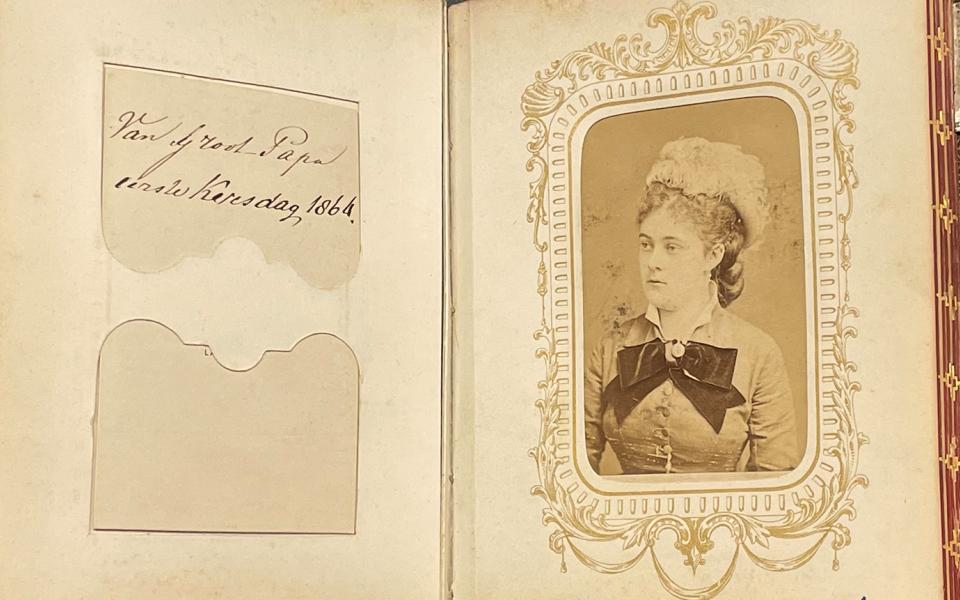 Van Groot-Papa
eerste Kersdag, 1864.